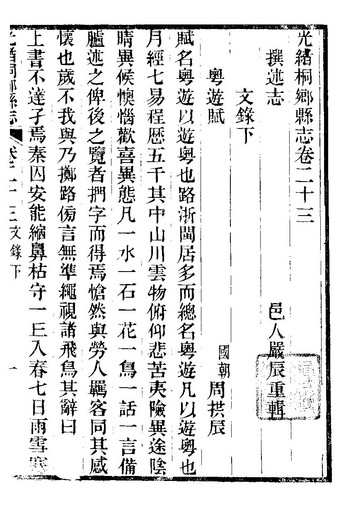 光緒桐鄉縣志卷二十三
邑人嚴辰重輯
撰述志
文錄下
粵遊賦
國朝周拱辰
賦名粵遊以遊粵也路浙閩居多而總名粵遊凡以遊粵也
月經七易程歷五千其中山川雲物俯仰悲苦夷險異途陰
晴異候懊惱歡喜異態凡一水一石一花一鳥一話一言備
臚述之俾後之覽者捫字而得焉愴然與勞人羈客同其感
懷也歲不我與乃擲路傍言無準繩視諸飛鳥其辭曰
上書不達孑焉秦囚安能縮鼻枯守一王入春七日雨雪寒
光緒桐鄉縣志
卷二十三文錄下
一